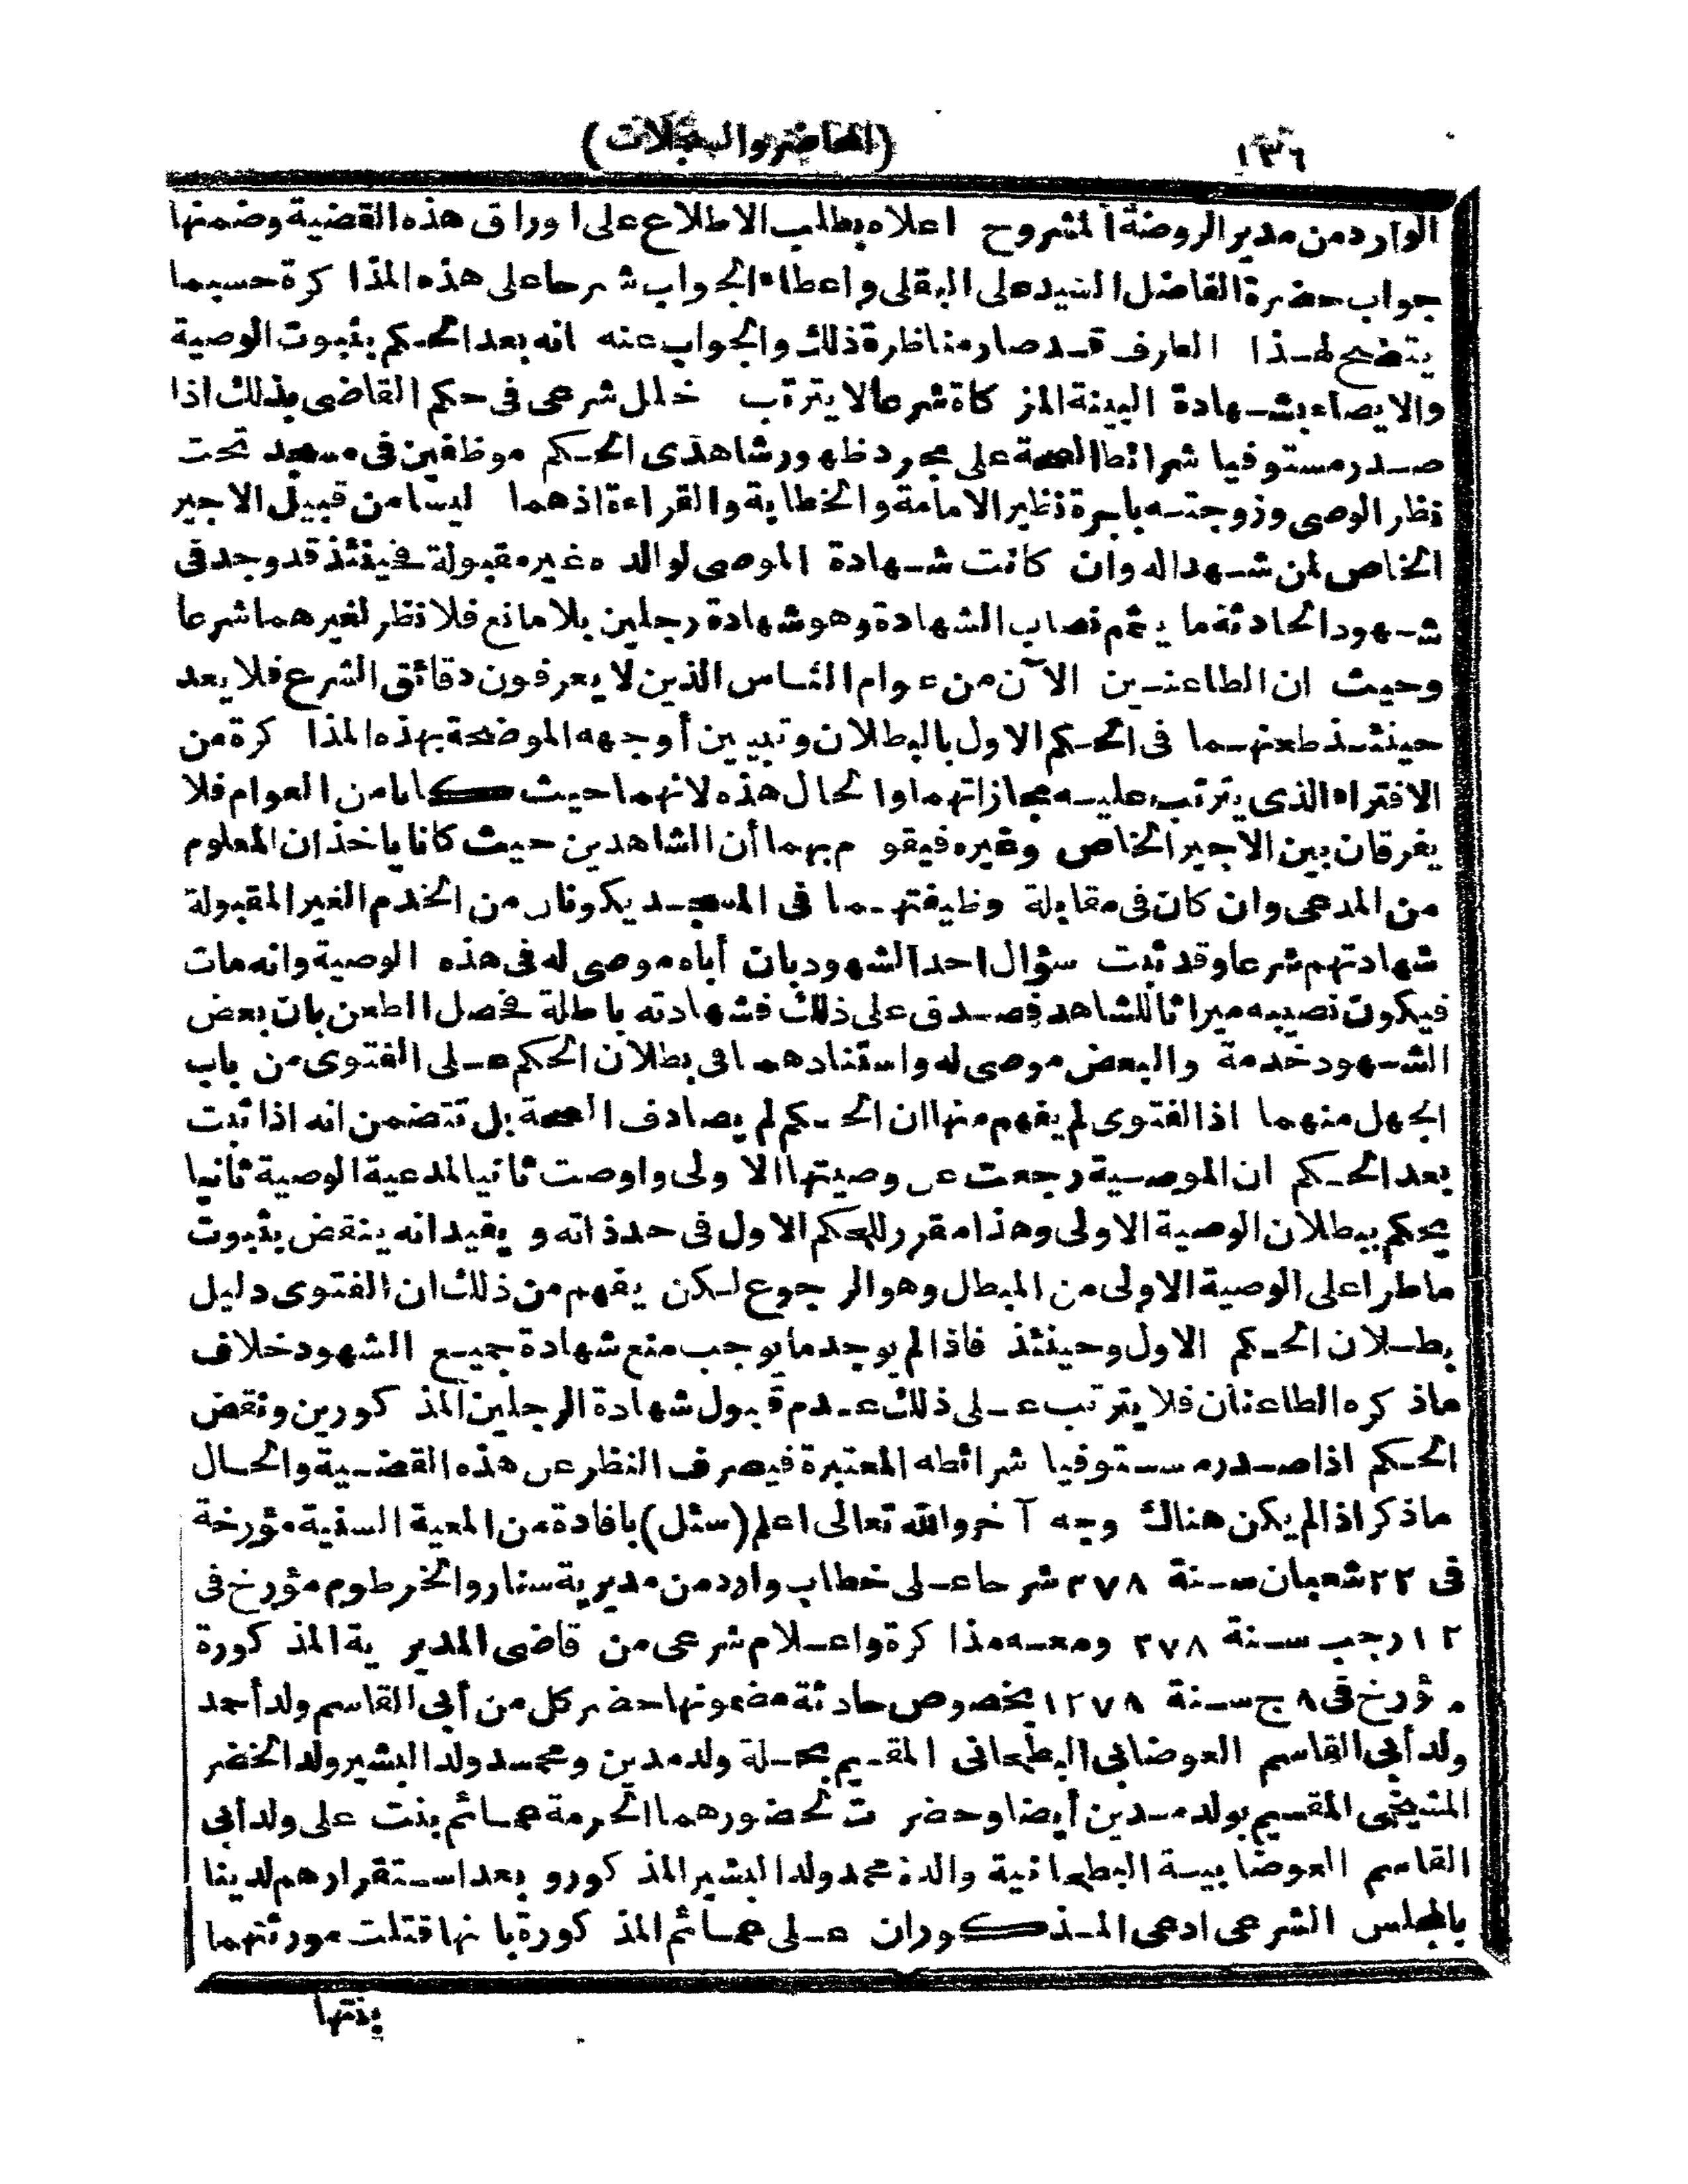 ١٣٦
(المحاضر والسجلات)
الوارد من مدير الروضة المشروح اعلاه بطلب الاطلاع على اوراق هذه القضية وضمنها
جواب حضرة الفاضل السيد على البقلى واعطاء الجواب شرحا على هذه المذاكرة حسبما
يتضح لهذا الطرف قد صار مناظرة ذلك والجواب عنه انه بعد الحكم بثبوت الوصية
والايصاء بشهادة البينة المزكاة شرعا لا يترتب خلل شرعى فى حكم القاضى بذلك اذا
صدر مستوفيا شرائط الصحة على مجرد ظهور شاهدى الحكم موظفين فى مسجد تحت
نظر الوصى وزوجته باجرة نظير الامامة والخطابة والقراءة اذ هما ليسا من قبيل الاجير
الخاص لمن شهدا له وان كانت شهادة الموصى لوالده غير مقبولة فحينئذ قد وجد فى
شهود الحادثة ما يتم نصاب الشهادة وهو شهادة رجلين بلا مانع فلا نظر لغيرهما شرعا
وحيث ان الطاعنين الآن من عوام الناس الذين لا يعرفون دقائق الشرع فلا يعد
حينئذ طعنهما فى الحكم الاول بالبطلان وتبيين أوجهه الموضحة بهذه المذاكرة من
الافتراء الذى يترتب عليه مجازاتهما والحال هذه لانهما حيث كانا من العوام فلا
يفرقان بين الاجير الخاص وغيره فيقوم بهما أن الشاهدين حيث كانا ياخذان المعلوم
من المدعى وان كان فى مقابلة وظيفتهما فى المسجد يكونان من الخدم الغير المقبولة
شهادتهم شرعا وقد ثبت سؤال احد الشهود بان أباه موصى له فى هذه الوصية وانه مات
فيكون نصيبه ميراثا للشاهد فصدق على ذلك فشهادته باطلة فحصل الطعن بان بعض
الشهود خدمة والبعض موصى له واستنادهما فى بطلان الحكم على الفتوى من باب
الجهل منهما اذ الفتوى لم يفهم منها ان الحكم لم يصادف الصحة بل تتضمن انه اذا ثبت
بعد الحكم ان الموصية رجعت عن وصيتها الاولى واوصت ثانيا لمدعية الوصية ثانيا
يحكم ببطلان الوصية الاولى وهذا مقرر للحكم الاول فى حد ذاته ويفيد انه ينقض بثبوت
ما طرا على الوصية الاولى من المبطل وهو الرجوع لكن يفهم من ذلك ان الفتوى دليل
بطلان الحكم الاول وحينئذ فاذا لم يوجد ما يوجب منع شهادة جميع الشهود خلاف
ماذكره الطاعنان فلا يترتب على ذلك عدم قبول شهادة الرجلين المذكورين ونقض
الحكم اذا صدر مستوفيا شرائطه المعتبرة فيصرف النظر عن هذه القضية والحال
ماذكر اذا لم يكن هناك وجه آخر والله تعالى اعلم (سئل) بافادة من المعية السنية مؤرخة
فى ٢٢ شعبان سنة ٢٧٨ شرحا على خطاب وارد من مديرية سنار والخرطوم مؤرخ فى
١٢ رجب سنة ٢٧٨ ومعه مذاكرة واعلام شرعى من قاضى المديرية المذكورة
مؤرخ فى ٨ ج سنة ١٢٧٨ بخصوص حادثة مضمونها حضر كل من أبى القاسم ولد أحمد
ولد أبى القاسم العوضابى البطحانى المقيم بحلة ولد مدين ومحمد ولد البشير ولد الخضر
المشيخى المقيم بولد مدين أيضا وحضرت لحضورهما الحرمة عمائم بنت على ولد أبى
القاسم العوضابية البطحانية والدة محمد ولد البشير المذكور وبعد استقرارهم لدينا
بالمجلس الشرعى ادعى المذكوران على عمائم المذكورة بانها قتلت مورثتهما
بنتها